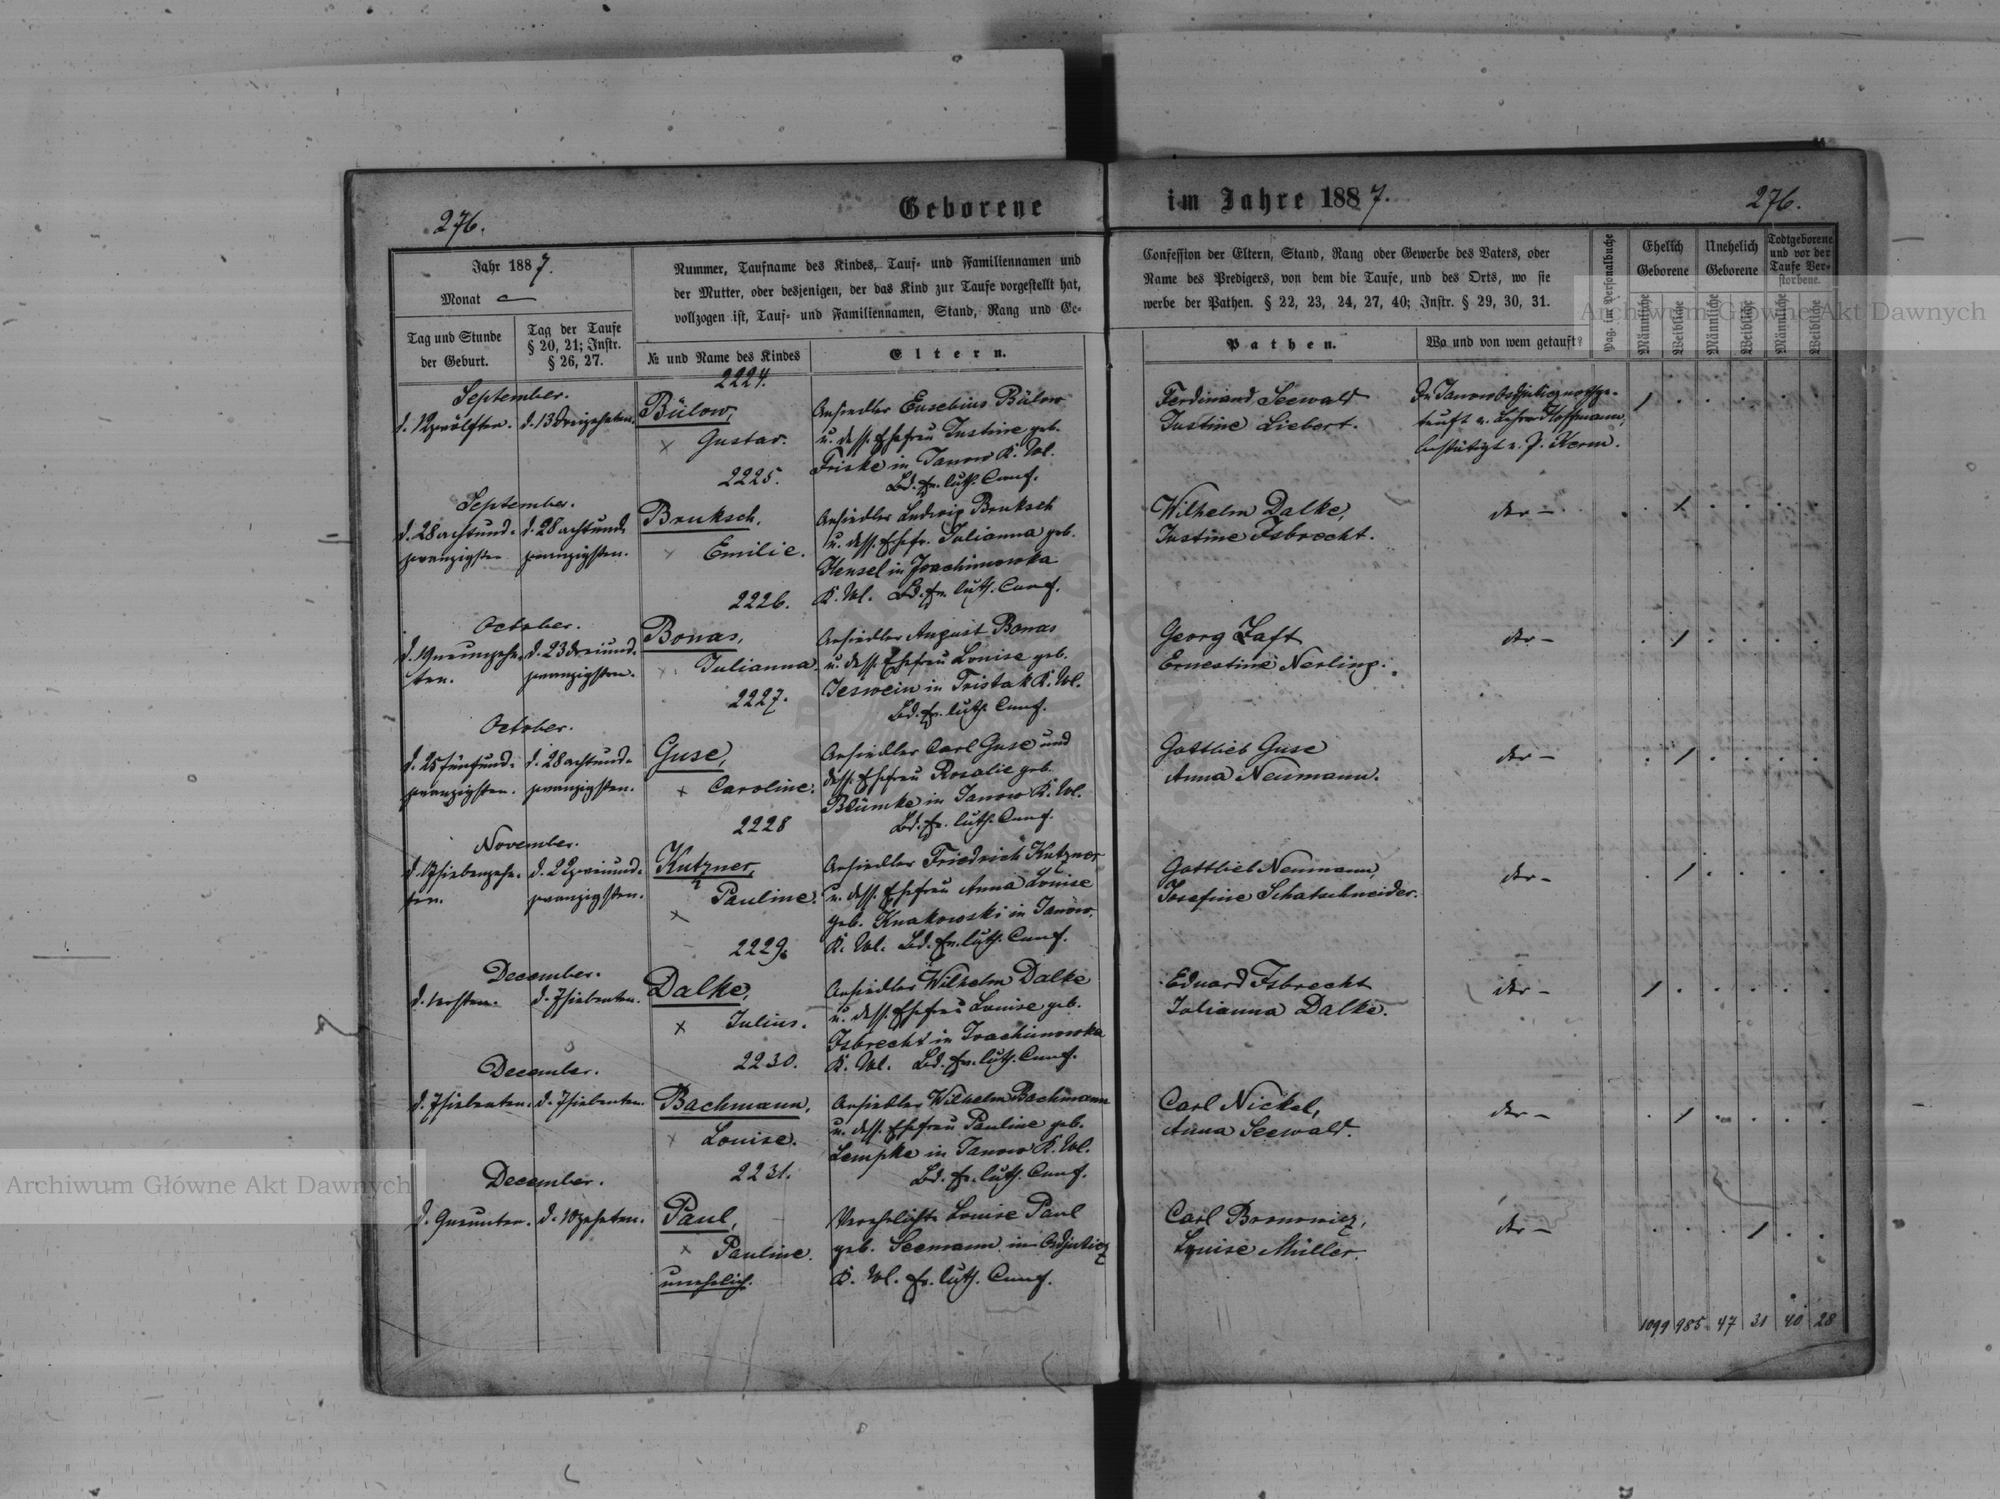 Geborene im Jahre 1887.
276.
276.
Jahr 1887.
Monat
Tag und Stunde
der Geburt.
Tag der Taufe
§ 20, 21; Instr.
§ 26, 27.
Nummer, Taufname des Kindes, Tauf- und Familiennamen und
der Mutter, oder desjenigen, der das Kind zur Taufe vorgestellt hat,
vollzogen ist, Tauf- und Familiennamen, Stand, Rang und Ge-
№ und Name des Kindes
Eltern.
Confession der Eltern, Stand, Rang oder Gewerbe des Vaters, oder
Name des Predigers, von dem die Taufe, und des Orts, wo sie
werbe der Pathen. § 22, 23, 24, 27, 40; Instr. § 29, 30, 31.
Pathen.
Wo und von wem getauft?
Pag. im Personalbuche
Ehelich
Geborene
Unehelich
Geborene
Todtgeborene
und vor der
Taufe Ver-
storbene.
Männliche
Weibliche
Männliche
Weibliche
Männliche
Weibliche
September.
d. 12 zwölften.
d. 13 dreizehnten.
2224.
Bülow,
Gustav.
Ansiedler Eusebius Bülow
u. dess. Ehefrau Justine geb.
Friske in Janow K. Wl.
Bd. ev. luth. Conf.
Ferdinand Seewald
Justine Liebert.
getauft v. Lehrer Hoffmann,
bestätigt v. P. Kerm.
September.
d. 28 achtund-
zwanzigsten
d. 28 achtund-
zwanzigsten.
2225.
Bruksch,
Emilie.
Ansiedler Ludwig Bruksch
u. dess. Ehefr. Julianna geb.
Hensel in Joachimowka
K. Wl. Bd. ev. luth. Conf.
Wilhelm Dalke,
Justine Isbrecht.
der-
October.
d. 19 neunzehn-
ten.
d. 23 dreiund-
zwanzigsten.
2226.
Bonas,
Julianna.
Ansiedler August Bonas
u. dess. Ehefrau Louise geb.
Jeswein in Tristak K. Wl.
Bd. ev. luth. Conf.
Georg Zaft
Ernestine Nerling.
der-
October.
d. 25 fünfund-
zwanzigsten.
d. 28 achtund-
zwanzigsten.
2227.
Guse,
Caroline.
Ansiedler Carl Guse und
dess. Ehefrau Rosalie geb.
Blümke in Janow K. Wl.
Bd. ev. luth. Conf.
Gottlieb Guse
Anna Neumann.
der-
November.
d. 17 siebenzehn-
ten.
d. 22 zweiund-
zwanzigsten.
2228
Kutzner,
Pauline.
Ansiedler Friedrich Kutzner
u. dess. Ehefrau Anna Louise
geb. Knakowski in Janow.
K. Wl. Bd. ev. luth. Conf.
Gottlieb Neumann,
Josefine Schatschneider.
der-
December.
d. 1 ersten.
d. 7 siebenten.
2229.
Dalke,
Julius.
Ansiedler Wilhelm Dalke
u. dess. Ehefrau Louise geb.
Isbrecht in Joachimowka
K. Wl. Bd. ev. luth. Conf.
Eduard Isbrecht
Julianna Dalke.
der-
December.
d. 7 siebenten.
d. 7 siebenten.
2230.
Bachmann,
Louise.
Ansiedler Wilhelm Bachmann
u. dess. Ehefrau Pauline geb.
Lempke in Janow K. Wl.
Bd. ev. luth. Conf.
Carl Nickel,
Anna Seewald.
der-
December.
d. 9 neunten.
d. 10 zehnten.
2231.
Paul,
Pauline.
unehelich.
Verehelichte Louise Paul
geb. Seemann in Osdjuticz
K. Wl. ev. luth. Conf.
Carl Borowicz,
Louise Müller.
der-
1099 985 47 31 40 28
Archiwum Główne Akt Dawnych
Archiwum Główne Akt Dawnych